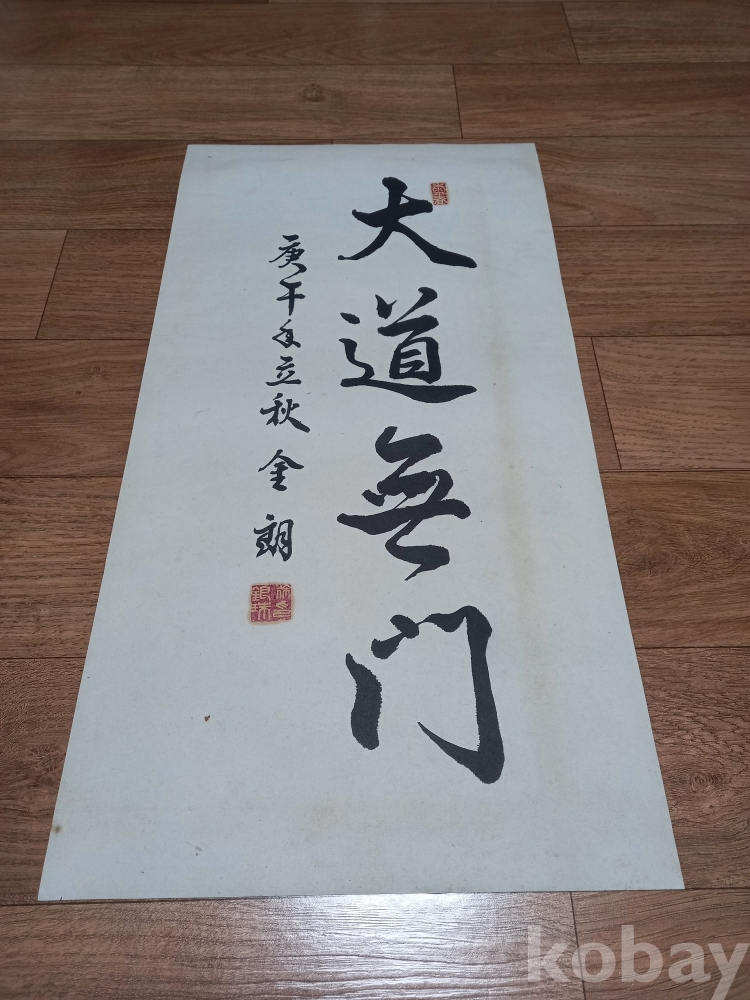 大道無门
庚午年立秋 金朗
kobay